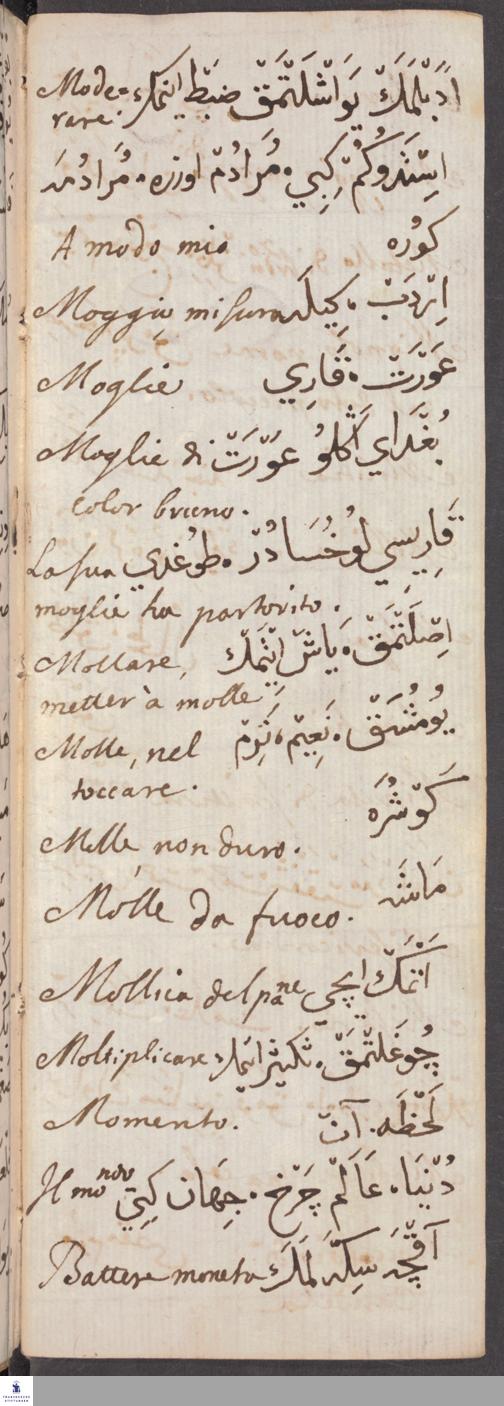 Mode= ادبلمك يواشلتمق ضبط ايتمك
rare.
استدوكم كبي، مرادم اوزره، مرادمه
A modo mio كوره
Moggio misura كيله، اردب
Moglie عورت، قاري
Moglie di بغداي اكلو عورت
color bruno.
La sua قاريسي لوخسا در، طوغدي
moglie ha partorito.
Mollare, اصلتمق، ياش ايتمك
metter à molle
Molle, nel يومشق، نعيم، نرم
toccare.
كوشره
Molle, non duro.
Molle da fuoco. ماشه
Mollica del pane اتمك ايچي
Moltiplicare چوغلتمق، تكثير ايتمك
Momento. لحظه، آن
Il mondo دنيا، عالم چرخ، جهان كيتي
Battere moneta آقچه سكه لمك